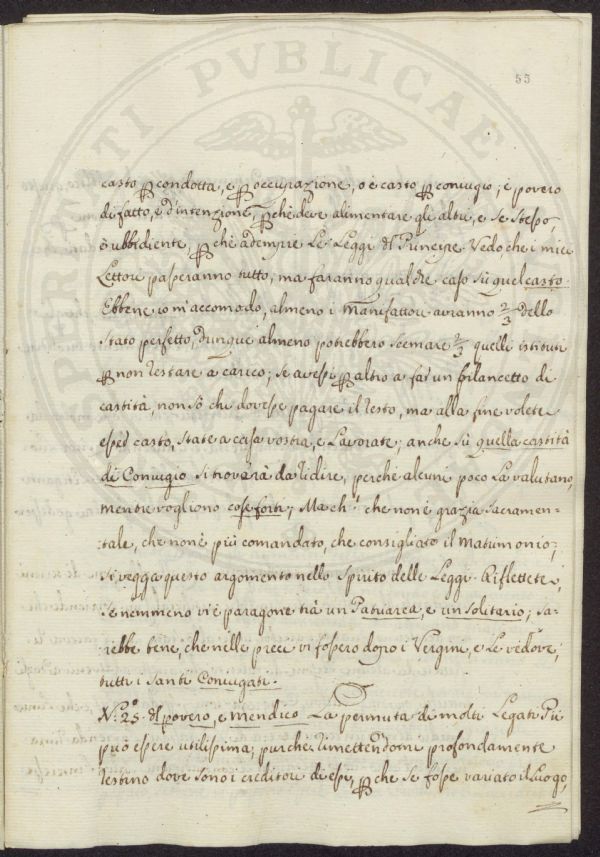 55
PROSPERITATI PVBLICAE
casto p condotta, e p occupazione, o è casto p coniugio; è povero
di fatto, e d'intenzione, pchè deve alimentare gli altri, e se stesso,
è ubbidiente, pchè adempie le Leggi del Principe. Vedo, che i miei
Lettori passeranno tutto, ma faranno qualche caso sù quel casto.
Ebbene io m'accomodo, almeno i Manifattori avranno 2/3 dello
stato perfetto, dunque almeno potrebbero scemare 2/3 quelli istituti
p non restare a carico; se avessi p altro a far un bilancetto di
castità, non sò chi dovesse pagare il resto, ma alla fine volete
esser casto, state a casa vostra, e Lavorate; anche sù quella castità
di Coniugio si troverà da ridire, perchè alcuni poco la valutano,
mentre vogliono cose forti; Ma ch! che non è grazia sacramen-
:tale, che non è più comandato, che consigliato il matrimonio;
si vegga questo argomento nello Spirito delle Leggi. Riflettete,
se nemmeno vi è paragone trà un Patriarca, e un solitario; sa-
:rebbe bene, che nelle preci vi fossero dopo i Vergini, e le vedove,
tutti i santi Coniugati.
N.º 25. Del povero, e mendico La permuta di molti Legati Pii
può essere utilissima; purchè rimettendomi profondamente
restino dove sono i creditori di essi, pchè se fosse variato il Luogo,